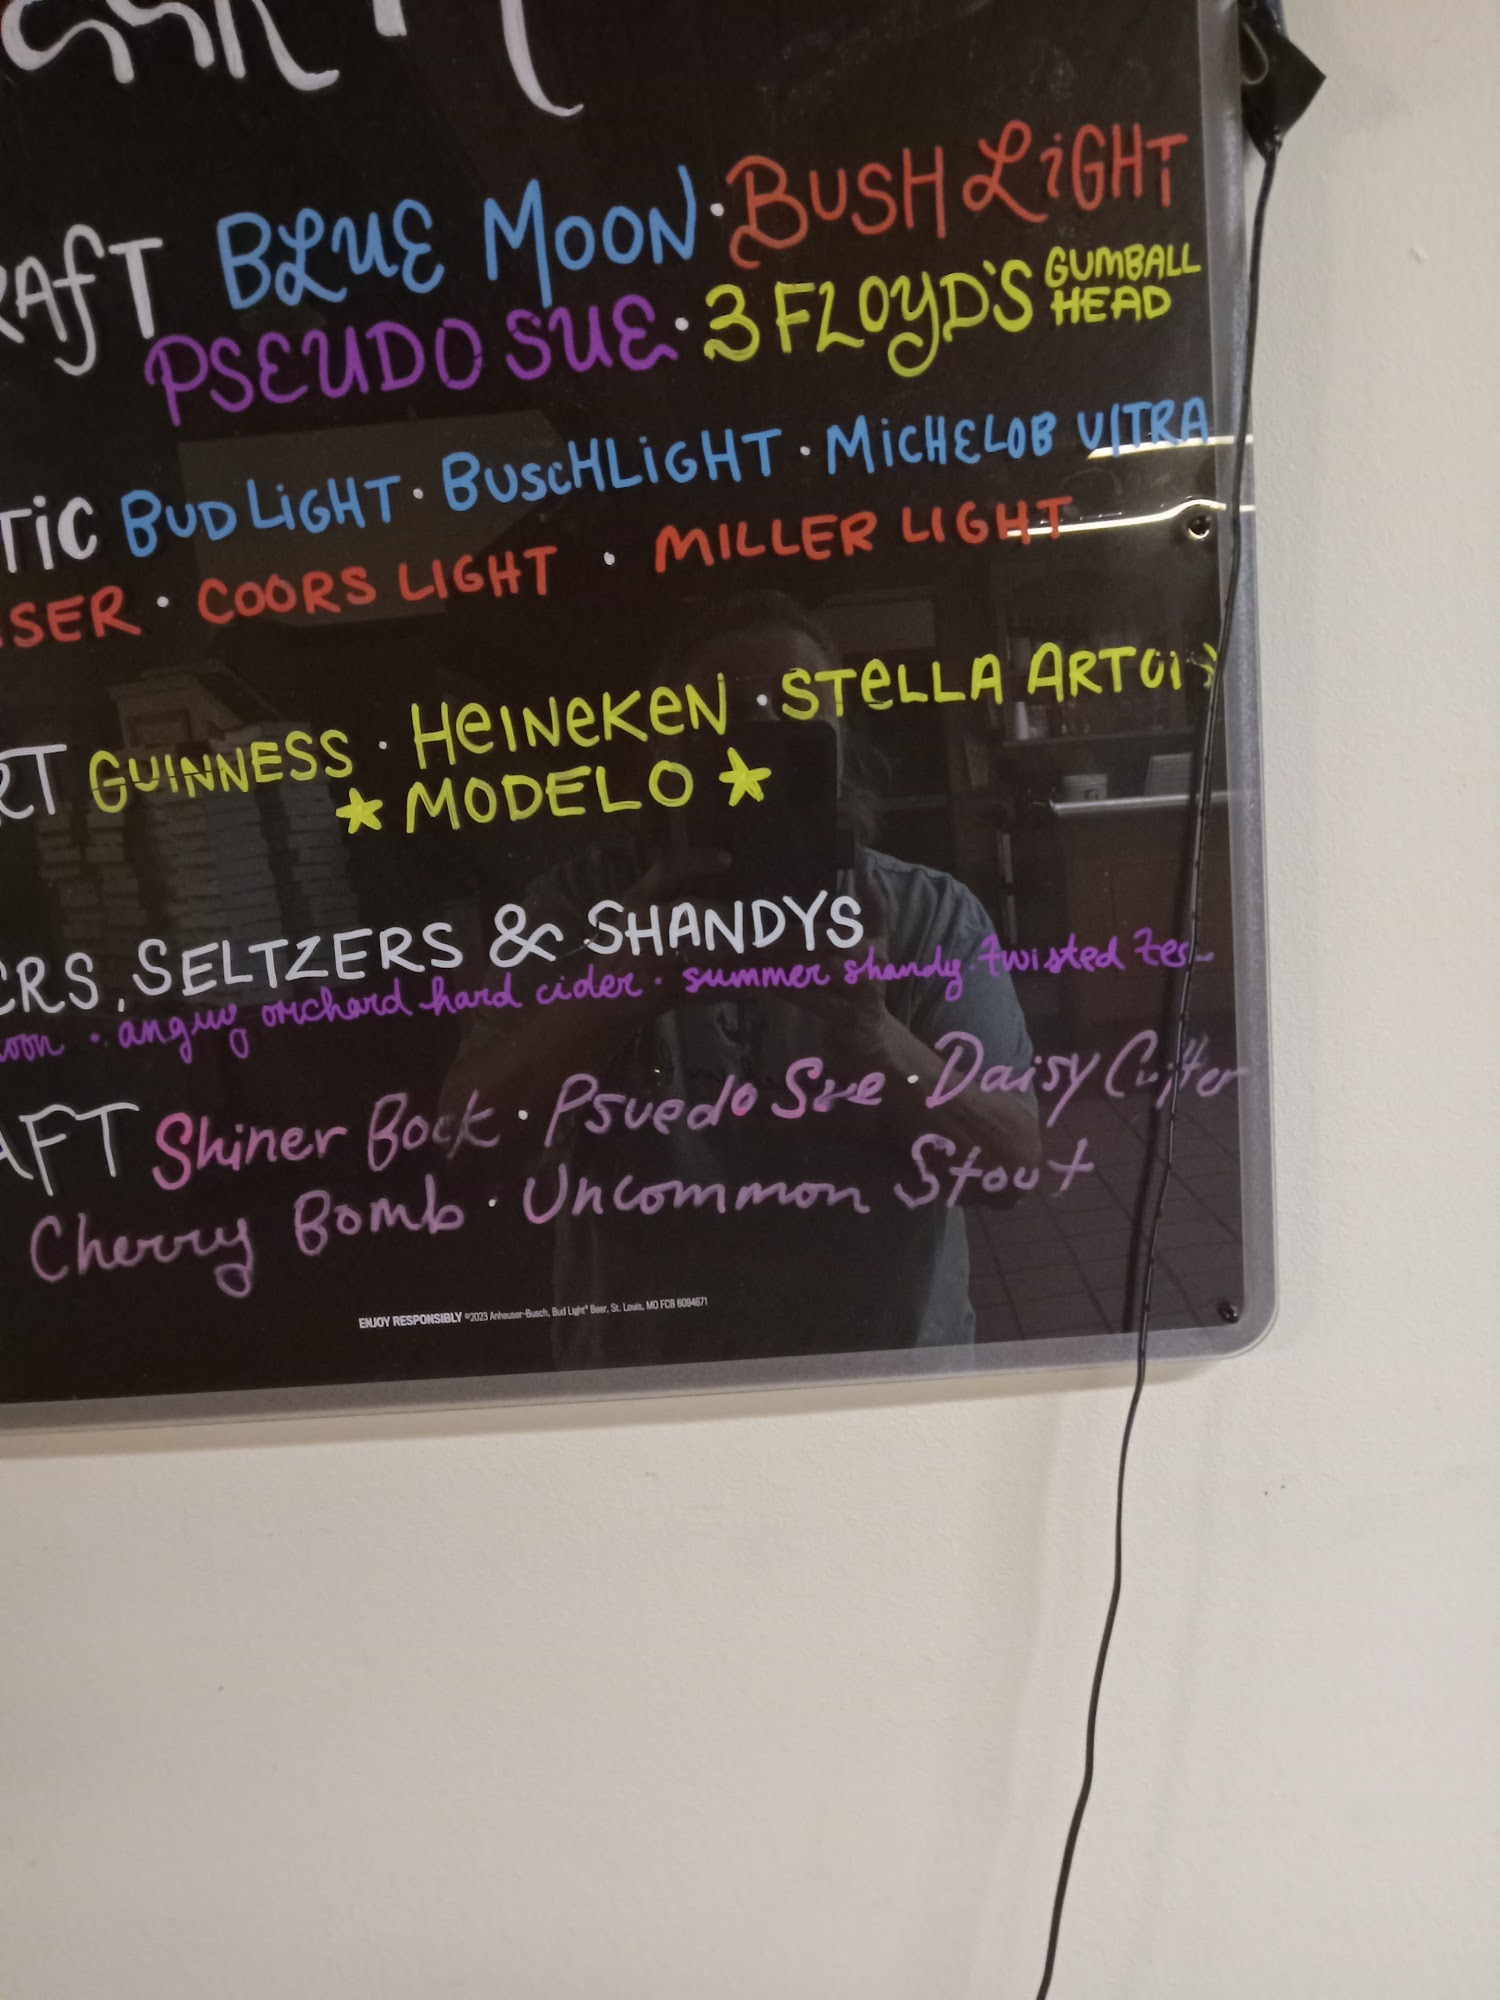 RAfT BLUE MOON · BUSH LiGHT
PSEUDO SUE · 3 FLOYD'S GUMBALL HEAD
TiC BUD LiGHT · BUSCHLiGHT · MiCHELOB ULTRA
ISER · COORS LIGHT · MILLER LIGHT
RT GUINNESS · HeINeKeN · STeLLA ARTOIS
★ MODELO ★
ERS, SELTZERS & SHANDYS
oon · angry orchard hard cider · summer shandy · twisted tea
AFT Shiner Bock · Psuedo Sue · Daisy Cutter
Cherry Bomb · Uncommon Stout
ENJOY RESPONSIBLY ©2023 Anheuser-Busch, Bud Light® Beer, St. Louis, MO FCB 6094671